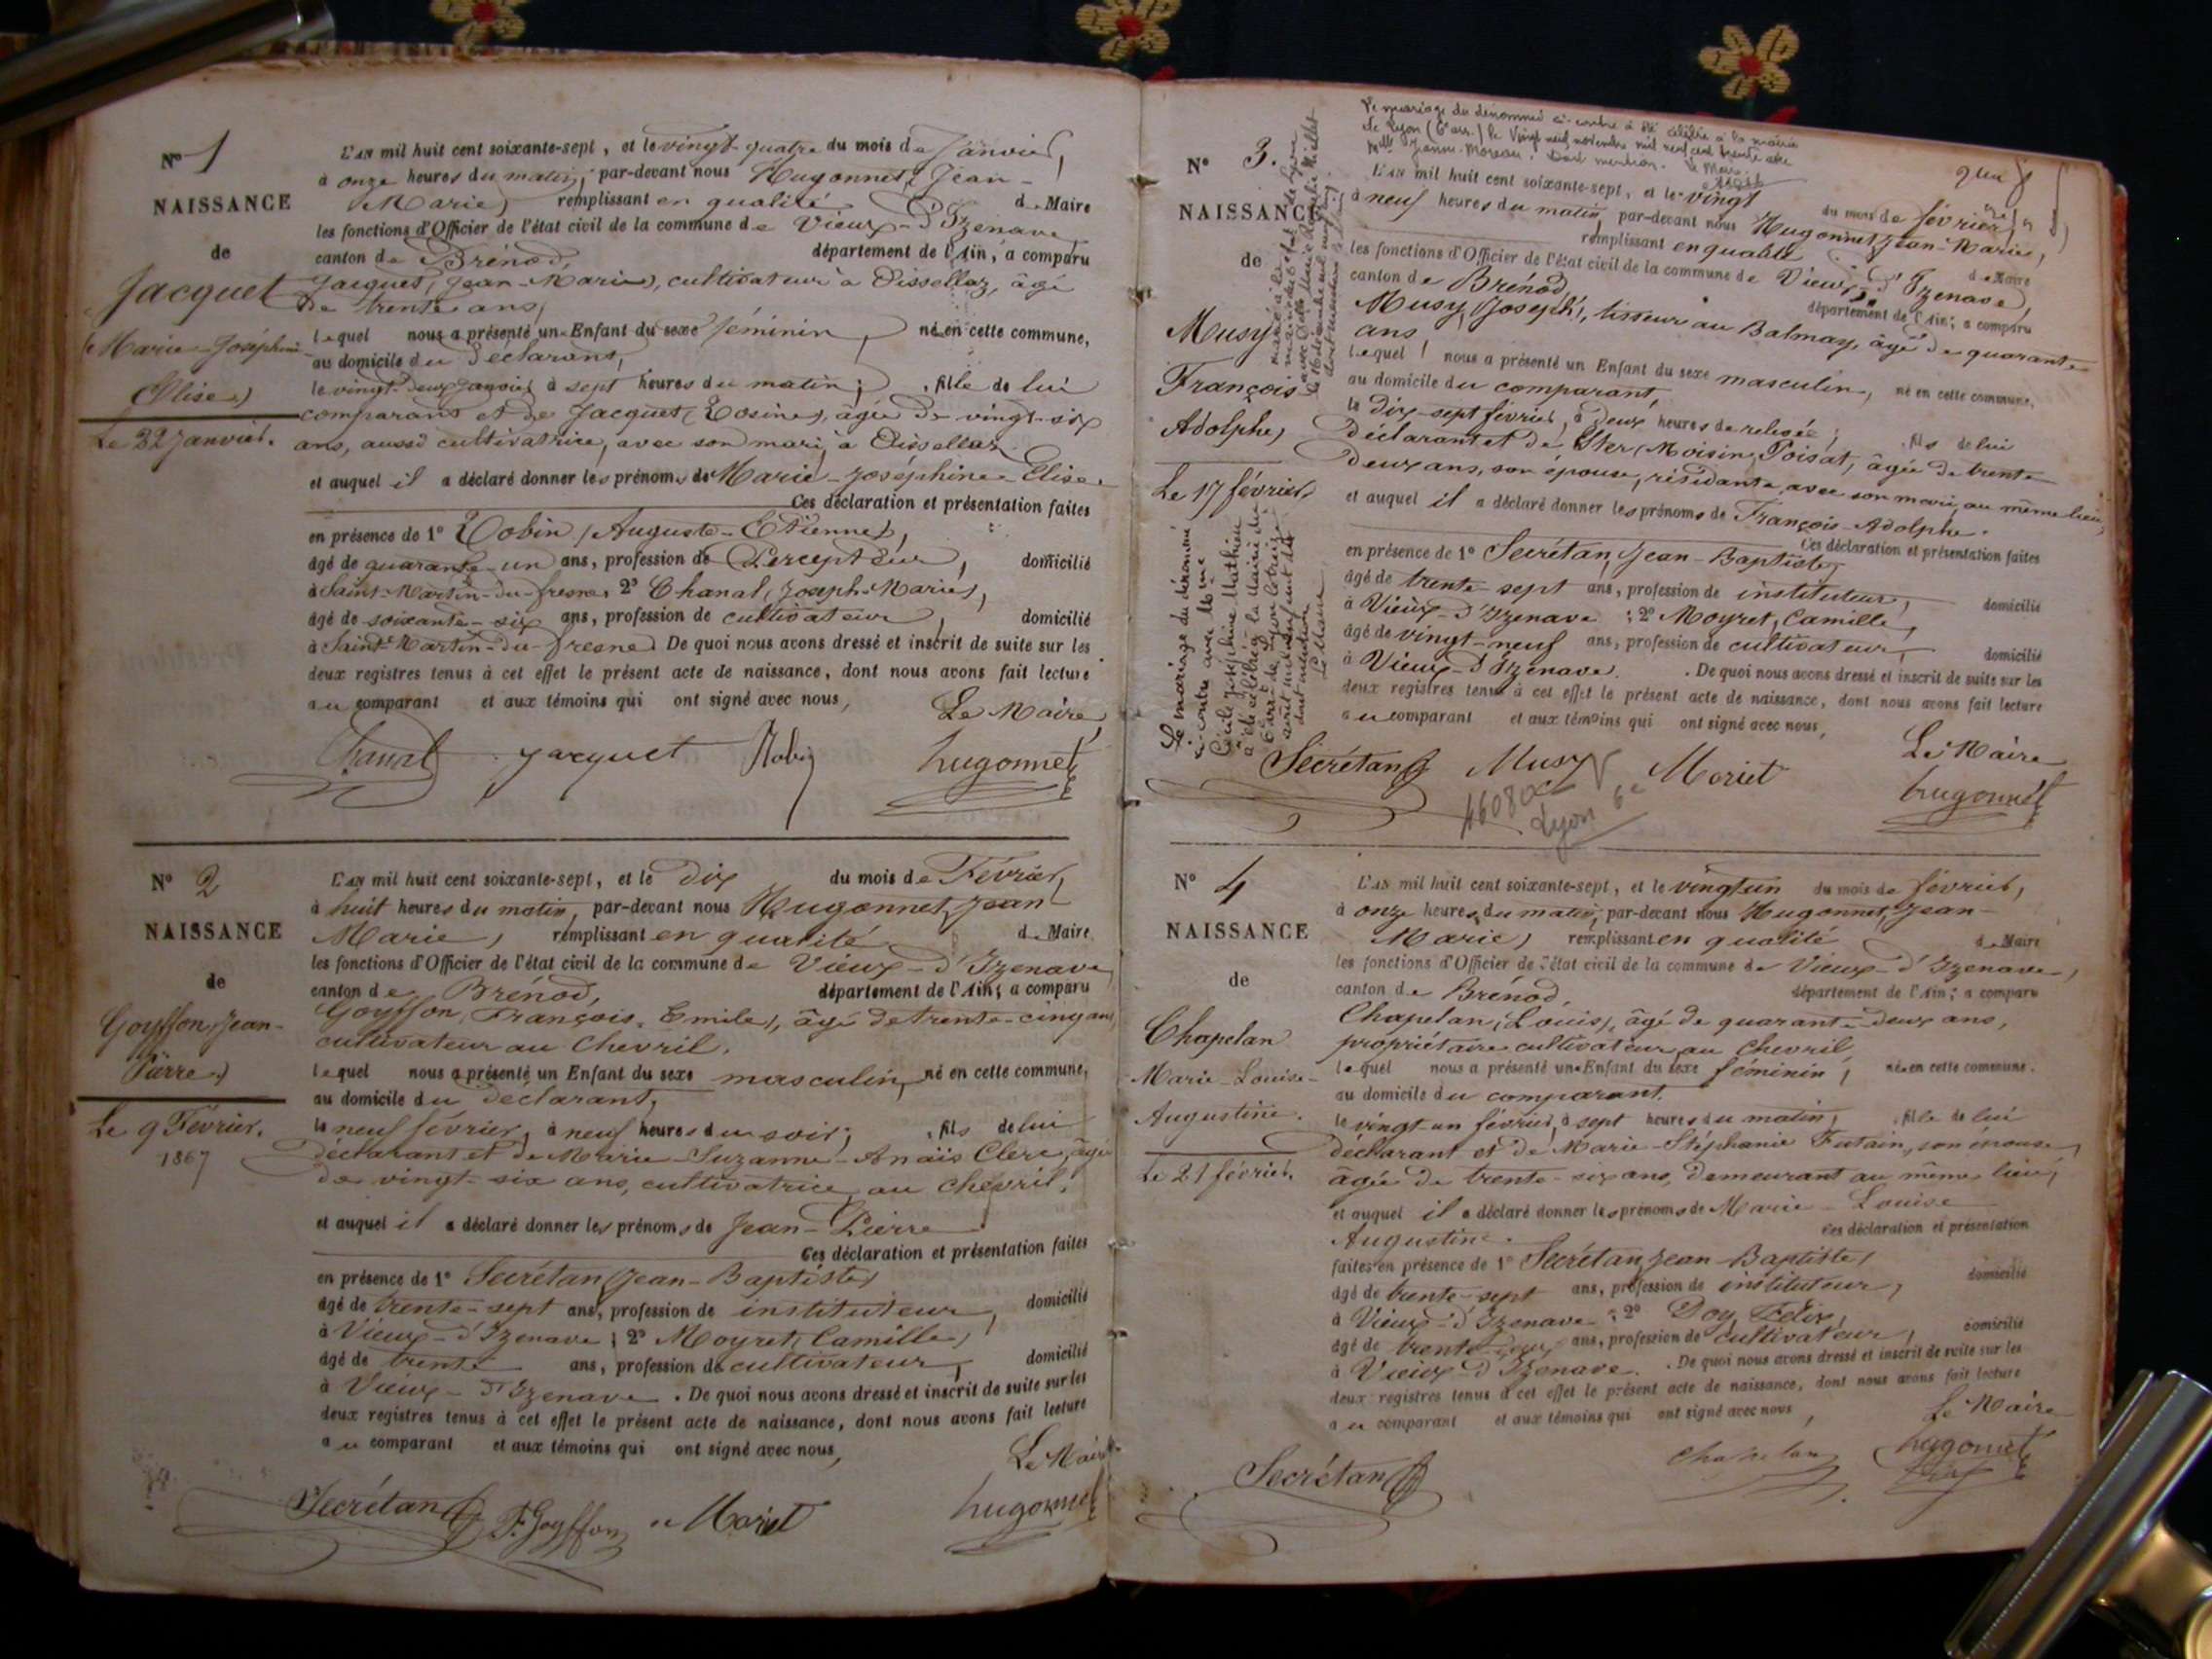 N° 1
NAISSANCE
de
Jacquet
Marie-Joséphine
Elise
Le 22 Janvier.
L'AN mil huit cent soixante-sept, et le vingt-quatre du mois de Janvier,
à onze heures du matin, par-devant nous Hugonnet, Jean-
Marie, remplissant en qualité de Maire
les fonctions d'Officier de l'état civil de la commune de Vieux-d'Izenave
canton de Brénod, département de l'Ain; a comparu
Jacquet, (Jean-Marie), cultivateur à Oissellaz, âgé
de trente ans,
lequel nous a présenté une Enfant du sexe féminin, née en cette commune,
au domicile du Déclarant,
le vingt-deux janvier à sept heures du matin; fille de lui
comparant et de Jacquet (Rosine), âgée de vingt-six
ans, aussi cultivatrice, avec son mari, à Oissellaz
et auquel il a déclaré donner les prénoms de Marie-Joséphine-Elise.
Ces déclaration et présentation faites
en présence de 1° Robin (Auguste-Etienne),
âgé de quarante-un ans, profession de Percepteur, domicilié
à Saint-Martin-du-fresne, 2° Chanal, (Joseph-Marie),
âgé de soixante-six ans, profession de cultivateur, domicilié
à Saint-Martin-du-fresne De quoi nous avons dressé et inscrit de suite sur les
deux registres tenus à cet effet le présent acte de naissance, dont nous avons fait lecture
au comparant et aux témoins qui ont signé avec nous,
Le Maire,
Chanal Jacquet Robin hugonnet
N° 2
NAISSANCE
de
Goyffon, Jean-
Pierre
Le 9 Février.
1867
L'AN mil huit cent soixante-sept, et le Dix du mois de Février,
à huit heures du matin, par-devant nous Hugonnet, Jean
Marie, remplissant en qualité de Maire
les fonctions d'Officier de l'état civil de la commune de Vieux-d'Izenave
canton de Brénod, département de l'Ain; a comparu
Goyffon, François-Emile, âgé de trente-cinq ans,
cultivateur au Chevril.
lequel nous a présenté un Enfant du sexe masculin, né en cette commune,
au domicile du déclarant,
le neuf février, à neuf heures du soir; fils de lui
déclarant et de Marie-Suzanne-Anaïs Clerc, âgée
de vingt-six ans, cultivatrice au Chevril,
et auquel il a déclaré donner les prénoms de Jean-Pierre
Ces déclaration et présentation faites
en présence de 1° Secrétan (Jean-Baptiste)
âgé de trente-sept ans, profession de instituteur, domicilié
à Vieux-d'Izenave; 2° Moyret, Camille,
âgé de trente ans, profession de cultivateur, domicilié
à Vieux-d'Izenave. De quoi nous avons dressé et inscrit de suite sur les
deux registres tenus à cet effet le présent acte de naissance, dont nous avons fait lecture
au comparant et aux témoins qui ont signé avec nous,
Le Maire
Secrétan F. Goyffon Moriet hugonnet
Le mariage du dénommé ci-contre a été célébré à la mairie
de Lyon (6e arr.) le Vingt neuf novembre mil neuf cent trente
Mlle Jeanne Moreau. Dont mention. Le Maire
N° 3.
NAISSANCE
de
Musy
François
Adolphe,
Le 17 février,
Le mariage du dénommé
ci-contre avec Mme
Cécile Joséphine Mathieu
a été célébré à la mairie du
6e arrt de Lyon le treize
dont mention
Le Maire
L'AN mil huit cent soixante-sept, et le vingt du mois de février,
à neuf heures du matin, par-devant nous Hugonnet, Jean-Marie,
remplissant en qualité de Maire
les fonctions d'Officier de l'état civil de la commune de Vieux-d'Izenave,
canton de Brénod, département de l'Ain; a comparu
Musy (Joseph), tisseur au Balmay, âgé de quarante
ans
lequel nous a présenté un Enfant du sexe masculin, né en cette commune,
au domicile du comparant,
le dix-sept février, à Deux heures de relevée; fils de lui
déclarant et de Ester (Moisine) Poisat, âgée de trente
deux ans, son épouse, résidante avec son mari, au même lieu,
et auquel il a déclaré donner les prénoms de François-Adolphe.
Ces déclaration et présentation faites
en présence de 1° Secrétan, Jean-Baptiste,
âgé de trente-sept ans, profession de instituteur, domicilié
à Vieux-d'Izenave; 2° Moyret, Camille,
âgé de vingt-neuf ans, profession de cultivateur, domicilié
à Vieux-d'Izenave. De quoi nous avons dressé et inscrit de suite sur les
deux registres tenus à cet effet le présent acte de naissance, dont nous avons fait lecture
au comparant et aux témoins qui ont signé avec nous,
Le Maire
Secrétan Musy Moriet hugonnet
Lyon 6e
N° 4
NAISSANCE
de
Chapelan
Marie-Louise-
Augustine.
Le 21 février.
L'AN mil huit cent soixante-sept, et le vingt un du mois de février,
à onze heures du matin, par-devant nous Hugonnet, Jean-
Marie, remplissant en qualité de Maire
les fonctions d'Officier de l'état civil de la commune de Vieux-d'Izenave,
canton de Brénod, département de l'Ain; a comparu
Chapelan, (Louis), âgé de quarante-deux ans,
propriétaire cultivateur au Chevril
lequel nous a présenté une Enfant du sexe féminin, née en cette commune.
au domicile du comparant.
le vingt-un février, à sept heures du matin, fille de lui
déclarant et de Marie-Stéphanie Futain, son épouse,
âgée de trente-six ans, demeurant au même lieu,
et auquel il a déclaré donner les prénoms de Marie-Louise
Augustine. Ces déclaration et présentation
faites en présence de 1° Secrétan, Jean-Baptiste,
âgé de trente-sept ans, profession de instituteur, domicilié
à Vieux-d'Izenave; 2° Doy, Félix,
âgé de trente ans, profession de cultivateur, domicilié
à Vieux-d'Izenave. De quoi nous avons dressé et inscrit de suite sur les
deux registres tenus à cet effet le présent acte de naissance, dont nous avons fait lecture
au comparant et aux témoins qui ont signé avec nous,
Le Maire
Secrétan Chapelan hugonnet